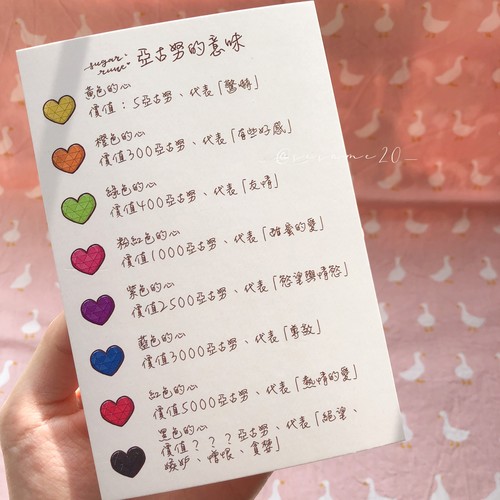 sugar sugar rune: 亞古努的意味
黃色的心
價值：5亞古努、代表「驚訝」
橙色的心
價值300亞古努、代表「有些好感」
綠色的心
價值400亞古努、代表「友情」
粉紅色的心
價值1000亞古努、代表「甜蜜的愛」
紫色的心
價值2500亞古努、代表「慾望與情慾」
藍色的心
價值3000亞古努、代表「尊敬」
紅色的心
價值5000亞古努、代表「熱情的愛」
黑色的心
價值？？？亞古努、代表「絕望、
嫉妒、憎恨、貪婪」